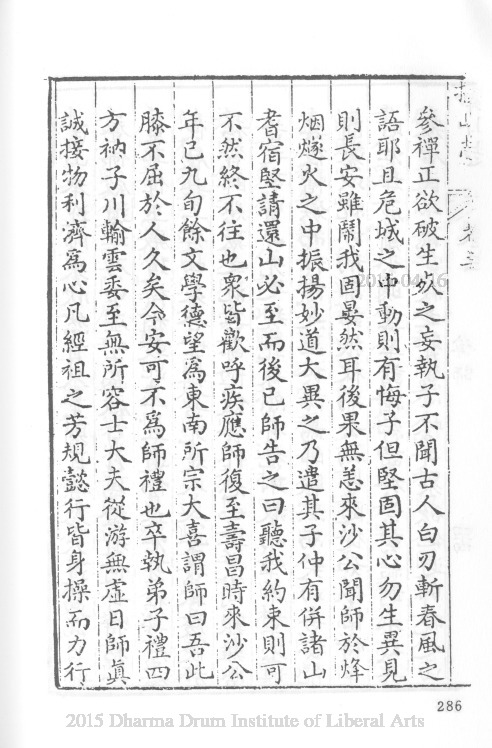 參禪正欲破生死之妄執子不聞古人白刃斬春風之
語耶且危城之中動則有悔子但堅固其心勿生異見
則長安雖鬧我固晏然耳後果無恙來沙公聞師於烽
烟燧火之中振揚妙道大異之乃遣其子仲有併諸山
耆宿堅請還山必至而後已師告之曰聽我約束則可
不然終不往也衆皆歡呼疾應師復至壽昌時來沙公
年已九旬餘文學德望爲東南所宗大喜謂師曰吾此
膝不屈於人久矣今安可不爲師禮也卒執弟子禮四
方衲子川輸雲委至無所容士大夫從游無虛日師眞
誠接物利濟爲心凡經祖之芳規懿行皆身操而力行
286
2015 Dharma Drum Institute of Liberal Arts